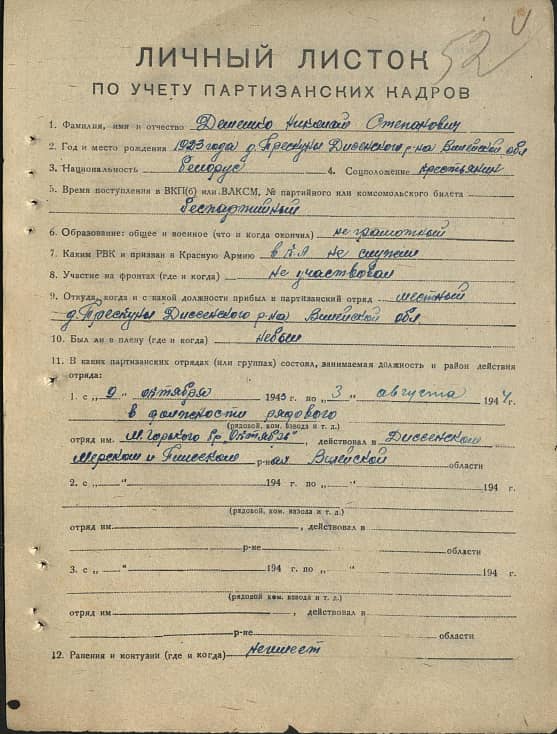 52
ЛИЧНЫЙ ЛИСТОК
ПО УЧЕТУ ПАРТИЗАНСКИХ КАДРОВ
1. Фамилия, имя и отчество Демешко Николай Степанович
2. Год и место рождения 1923 года д. Трескуны Дисенского р-на Вилейской обл
3. Национальность белорус 4. Соцположение крестьянин
5. Время поступления в ВКП(б) или ВЛКСМ, № партийного или комсомольского билета
беспартийный
6. Образование: общее и военное (что и когда окончил) не грамотный
7. Каким РВК и призван в Красную Армию в К-А не служил
8. Участие на фронтах (где и когда) не участвовал
9. Откуда, когда и с какой должности прибыл в партизанский отряд местный
д. Трескуны Диссенского р-на Вилейской обл
10. Был ли в плену (где и когда) небыл
11. В каких партизанских отрядах (или группах) состоял, занимаемая должность и район действия
отряда:
1. с „9“ октября 1943 г. по „3“ августа 1944 г.
в должности рядового
(рядовой, ком. взвода и т. д.)
отряд им. М. Горького бр. Октябрь", действовал в Диссенском
Мерском и р-нах Вилейской области
2. с „ “ 194 г. по „ “ 194 г.
(рядовой, ком. взвода и т. д.)
отряд им. , действовал в
р-не области
3. с „ “ 194 г. по „ “ 194 г.
(рядовой ком. взвода и т. д.)
отряд им. , действовал в
р-не области
12. Ранения и контузии (где и когда) неимеет